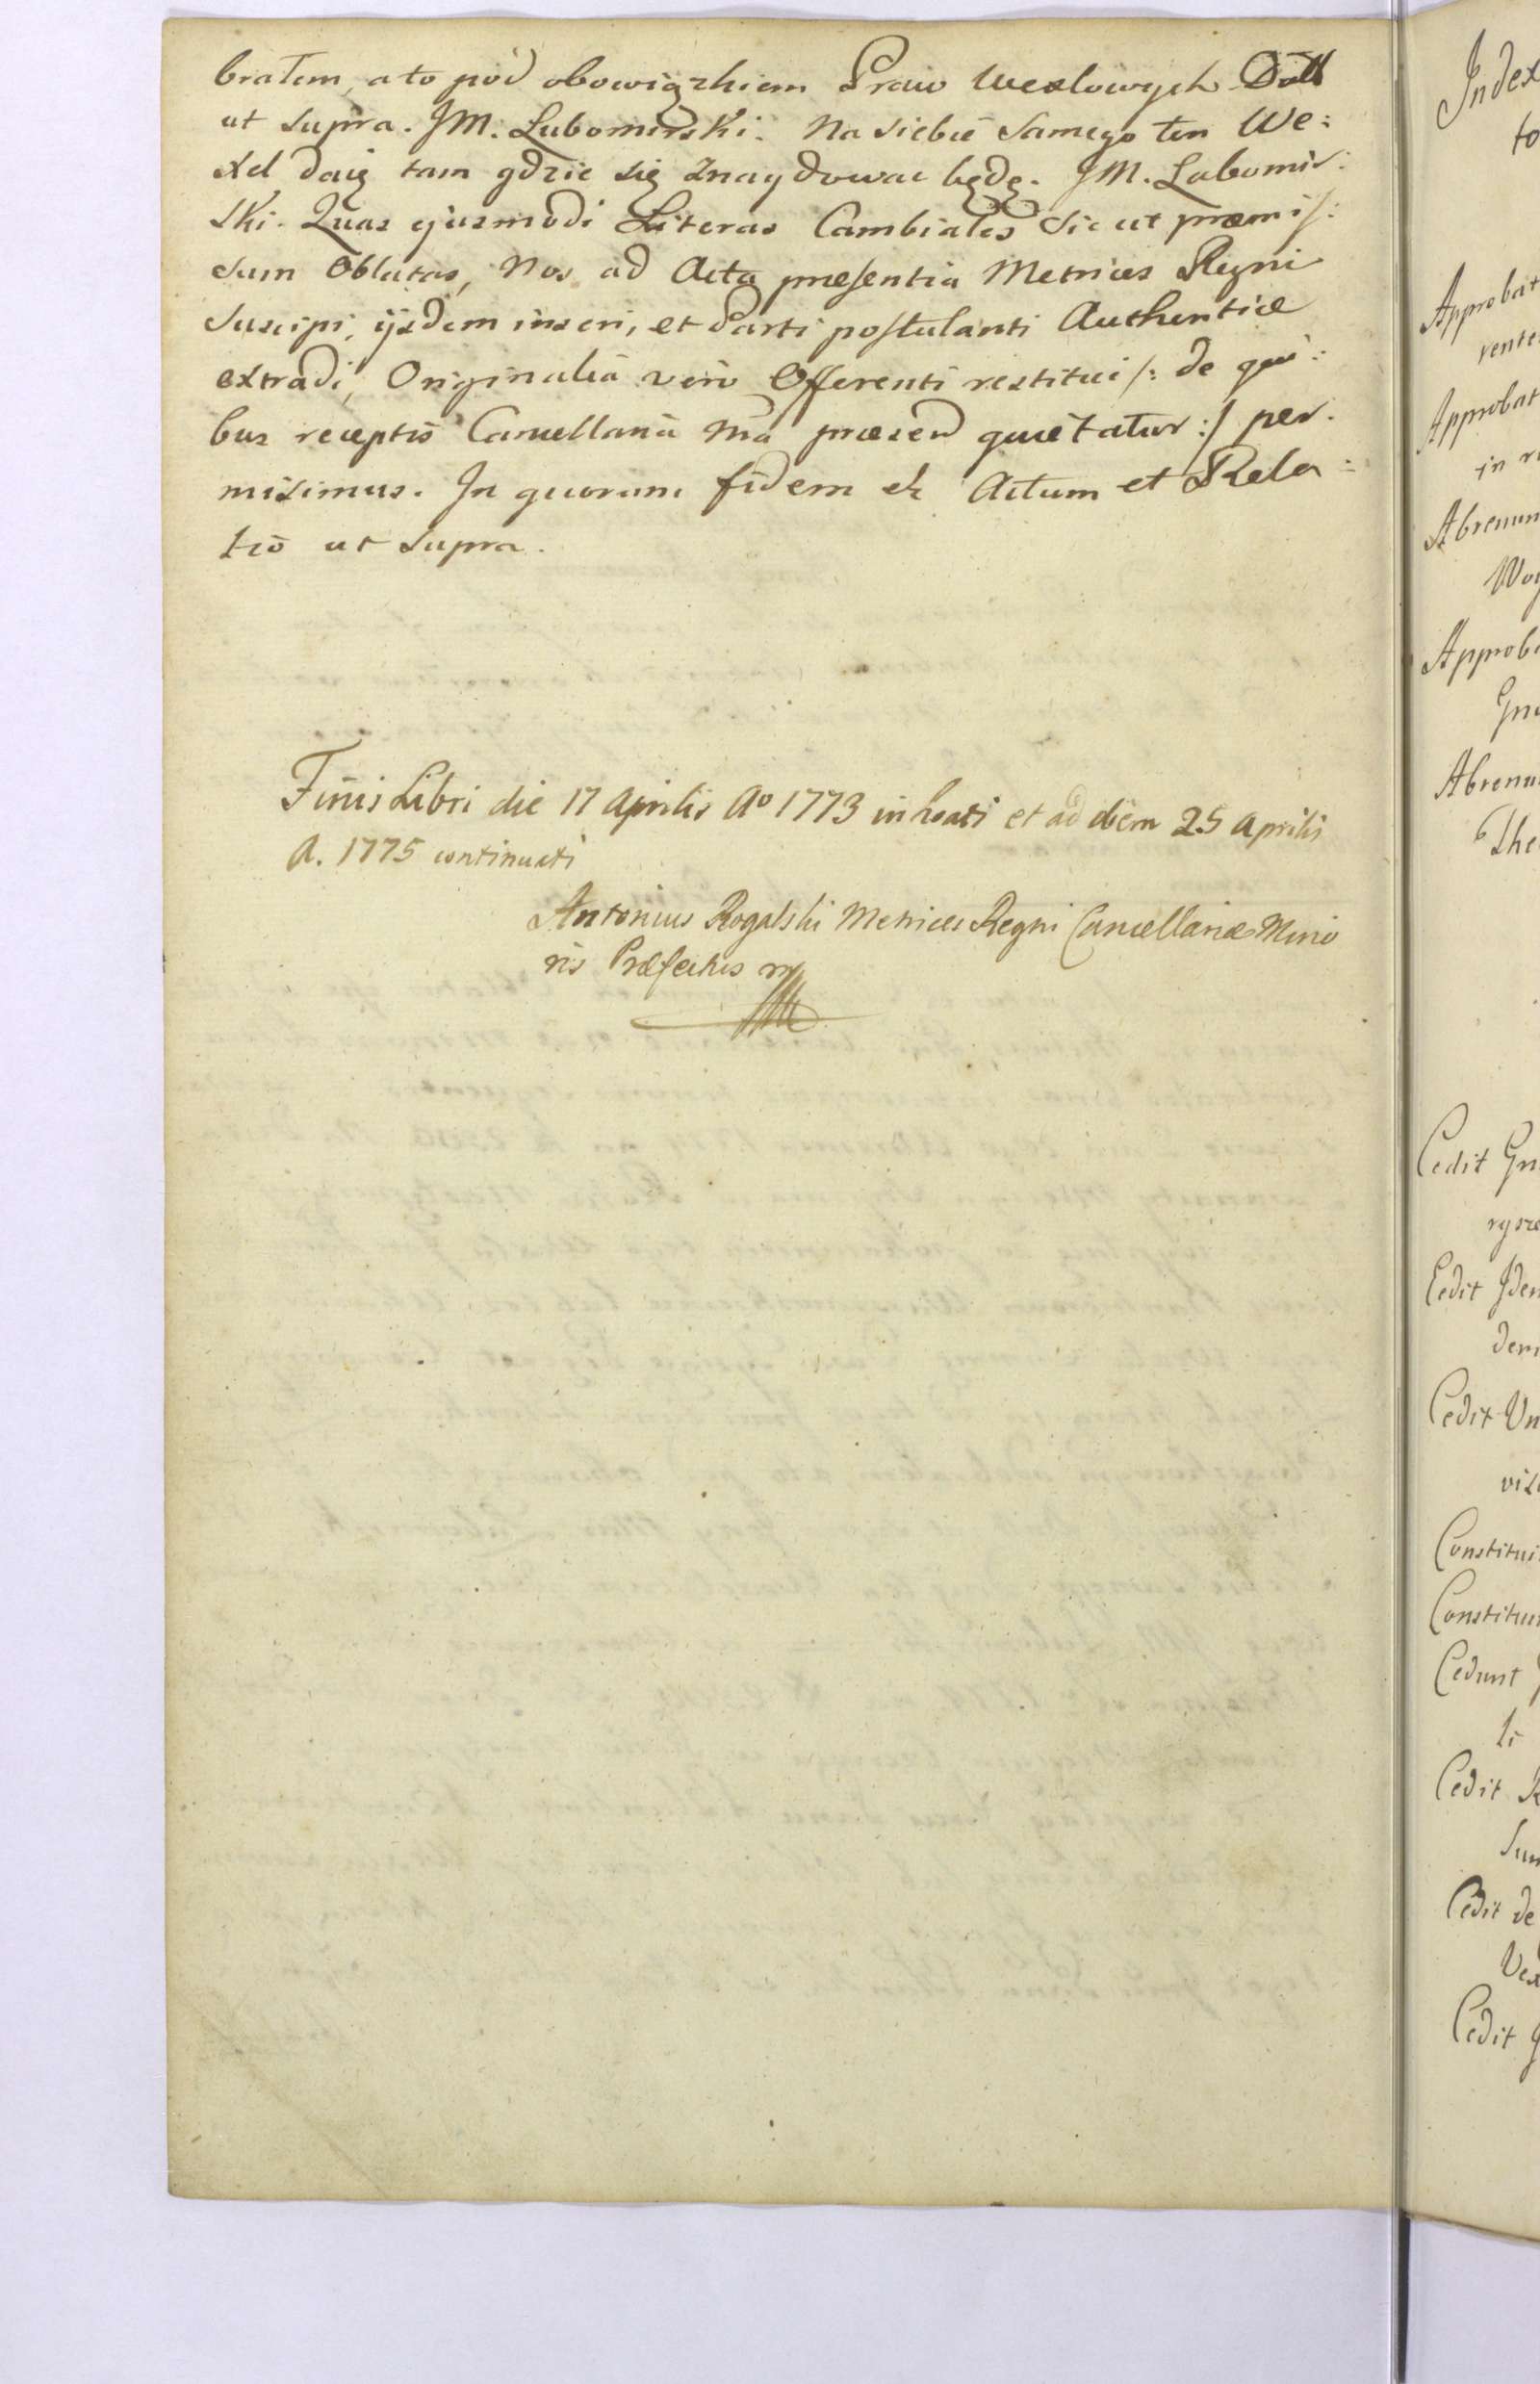 bratem, a to pod obowiązkiem Praw Wexlowych Datt
ut supra. JM. Lubomirski. Na siebie samego ten We:
xel daię tam gdzie się znaydować będę. JM. Lubomir:
ski. Quas ejusmodi Literas Cambiales sic ut præmis:
sum Oblatas, Nos ad Acta præsentia Metrices Regni
suscipi, ijsdem inseri, et Parti postulanti Authentice
extradi, Originalia vero Offerenti restitui /: de qui:
bus receptis Cancellaria Mĩa præsend quietatur :/ per:
misimus. In quorum fidem et Actum et Rela:
tio ut supra.
Finis Libri die 17 Aprilis Aº 1773 inhoati et ad diem 25 Aprilis
A. 1775 continuati
Antonius Rogalski Metrices Regni Cancellariæ Mino
ris Præfectus mp
Index
to
Approbat
rente
Approbat
in r
Abrenun
Woy
Approba
Gn
Abrenu
The
Cedit Gn
rysze
Cedit Iden
dem
Cedit Un
vis
Constitui
Constitui
Cedunt
li
Cedit
Sum
Cedit de
Vex
Cedit